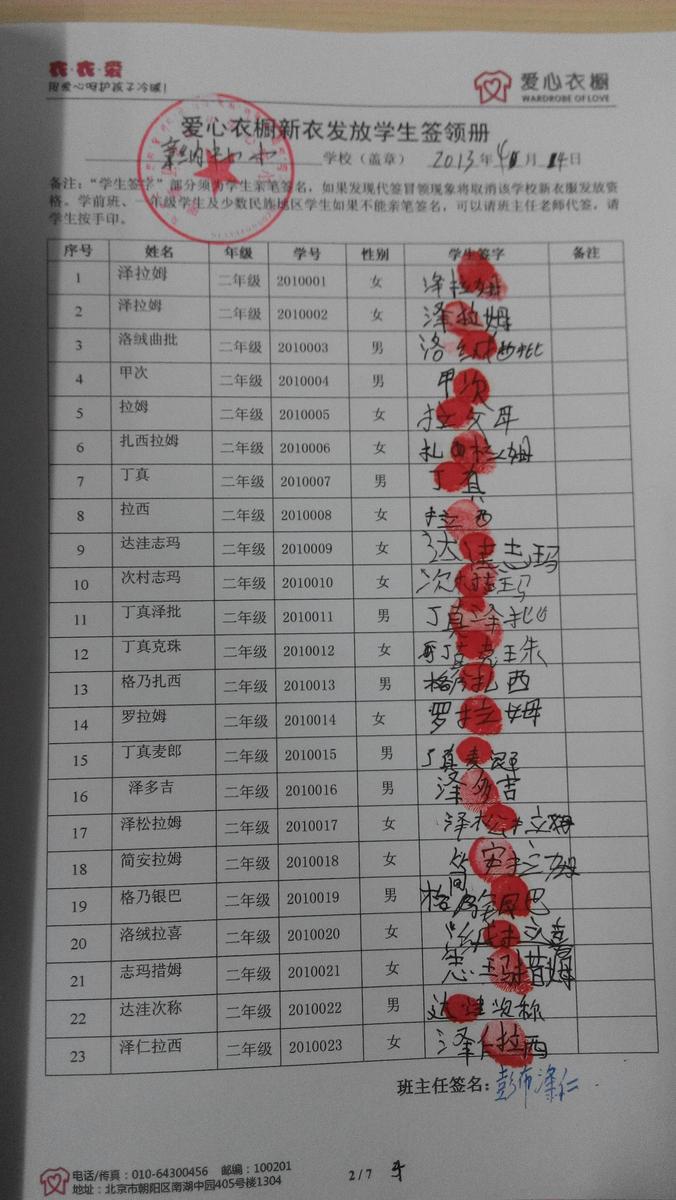 衣·衣·爱
用爱心呵护孩子冷暖!
爱心衣橱
WARDROBE OF LOVE
爱心衣橱新衣发放学生签领册
学校（盖章） 2013年 月 14日
备注：“学生签字”部分须为学生亲笔签名，如果发现代签冒领现象将取消该学校新衣服发放资
格。学前班、一年级学生及少数民族地区学生如果不能亲笔签名，可以请班主任老师代签，请
学生按手印。
序号 姓名 年级 学号 性别 学生签字 备注
1 泽拉姆 二年级 2010001 女 泽拉姆
2 泽拉姆 二年级 2010002 女 泽拉姆
3 洛绒曲批 二年级 2010003 男 洛绒曲批
4 甲次 二年级 2010004 男 甲次
5 拉姆 二年级 2010005 女 拉姆
6 扎西拉姆 二年级 2010006 女 扎西拉姆
7 丁真 二年级 2010007 男 丁真
8 拉西 二年级 2010008 女 拉西
9 达洼志玛 二年级 2010009 女 达洼志玛
10 次村志玛 二年级 2010010 女 次村志玛
11 丁真泽批 二年级 2010011 男 丁真泽批
12 丁真克珠 二年级 2010012 女 丁真克珠
13 格乃扎西 二年级 2010013 男 格乃扎西
14 罗拉姆 二年级 2010014 女 罗拉姆
15 丁真麦郎 二年级 2010015 男 丁真麦
16 泽多吉 二年级 2010016 男 泽多吉
17 泽松拉姆 二年级 2010017 女 泽松拉姆
18 简安拉姆 二年级 2010018 女 简安拉姆
19 格乃银巴 二年级 2010019 男 格乃银巴
20 洛绒拉喜 二年级 2010020 女 洛绒拉喜
21 志玛措姆 二年级 2010021 女 志玛措姆
22 达洼次称 二年级 2010022 男 达洼次称
23 泽仁拉西 二年级 2010023 女 泽仁拉西
班主任签名：彭布泽仁
电话/传真：010-64300456 邮编：100201
地址：北京市朝阳区南湖中园405号楼1304
2 / 7